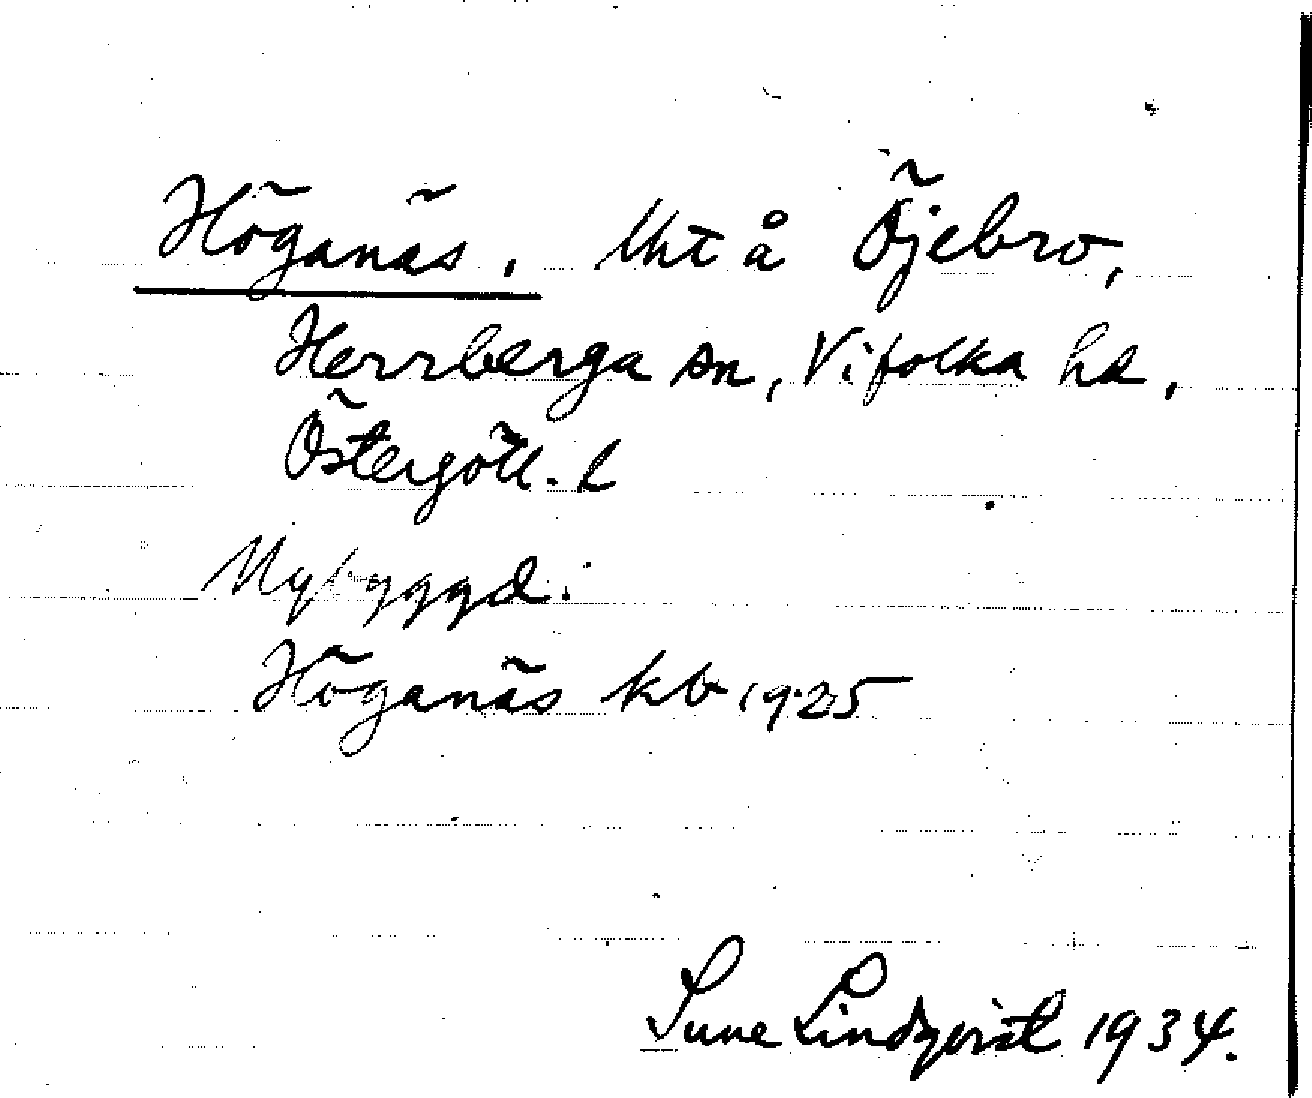 Höganäs. Uht å Öjebro,
Herrberga sn, Vifolka hd,
Östergötl. l
Nybyggd.
Höganäs kb 1925
Sune Lindqvist 1934.